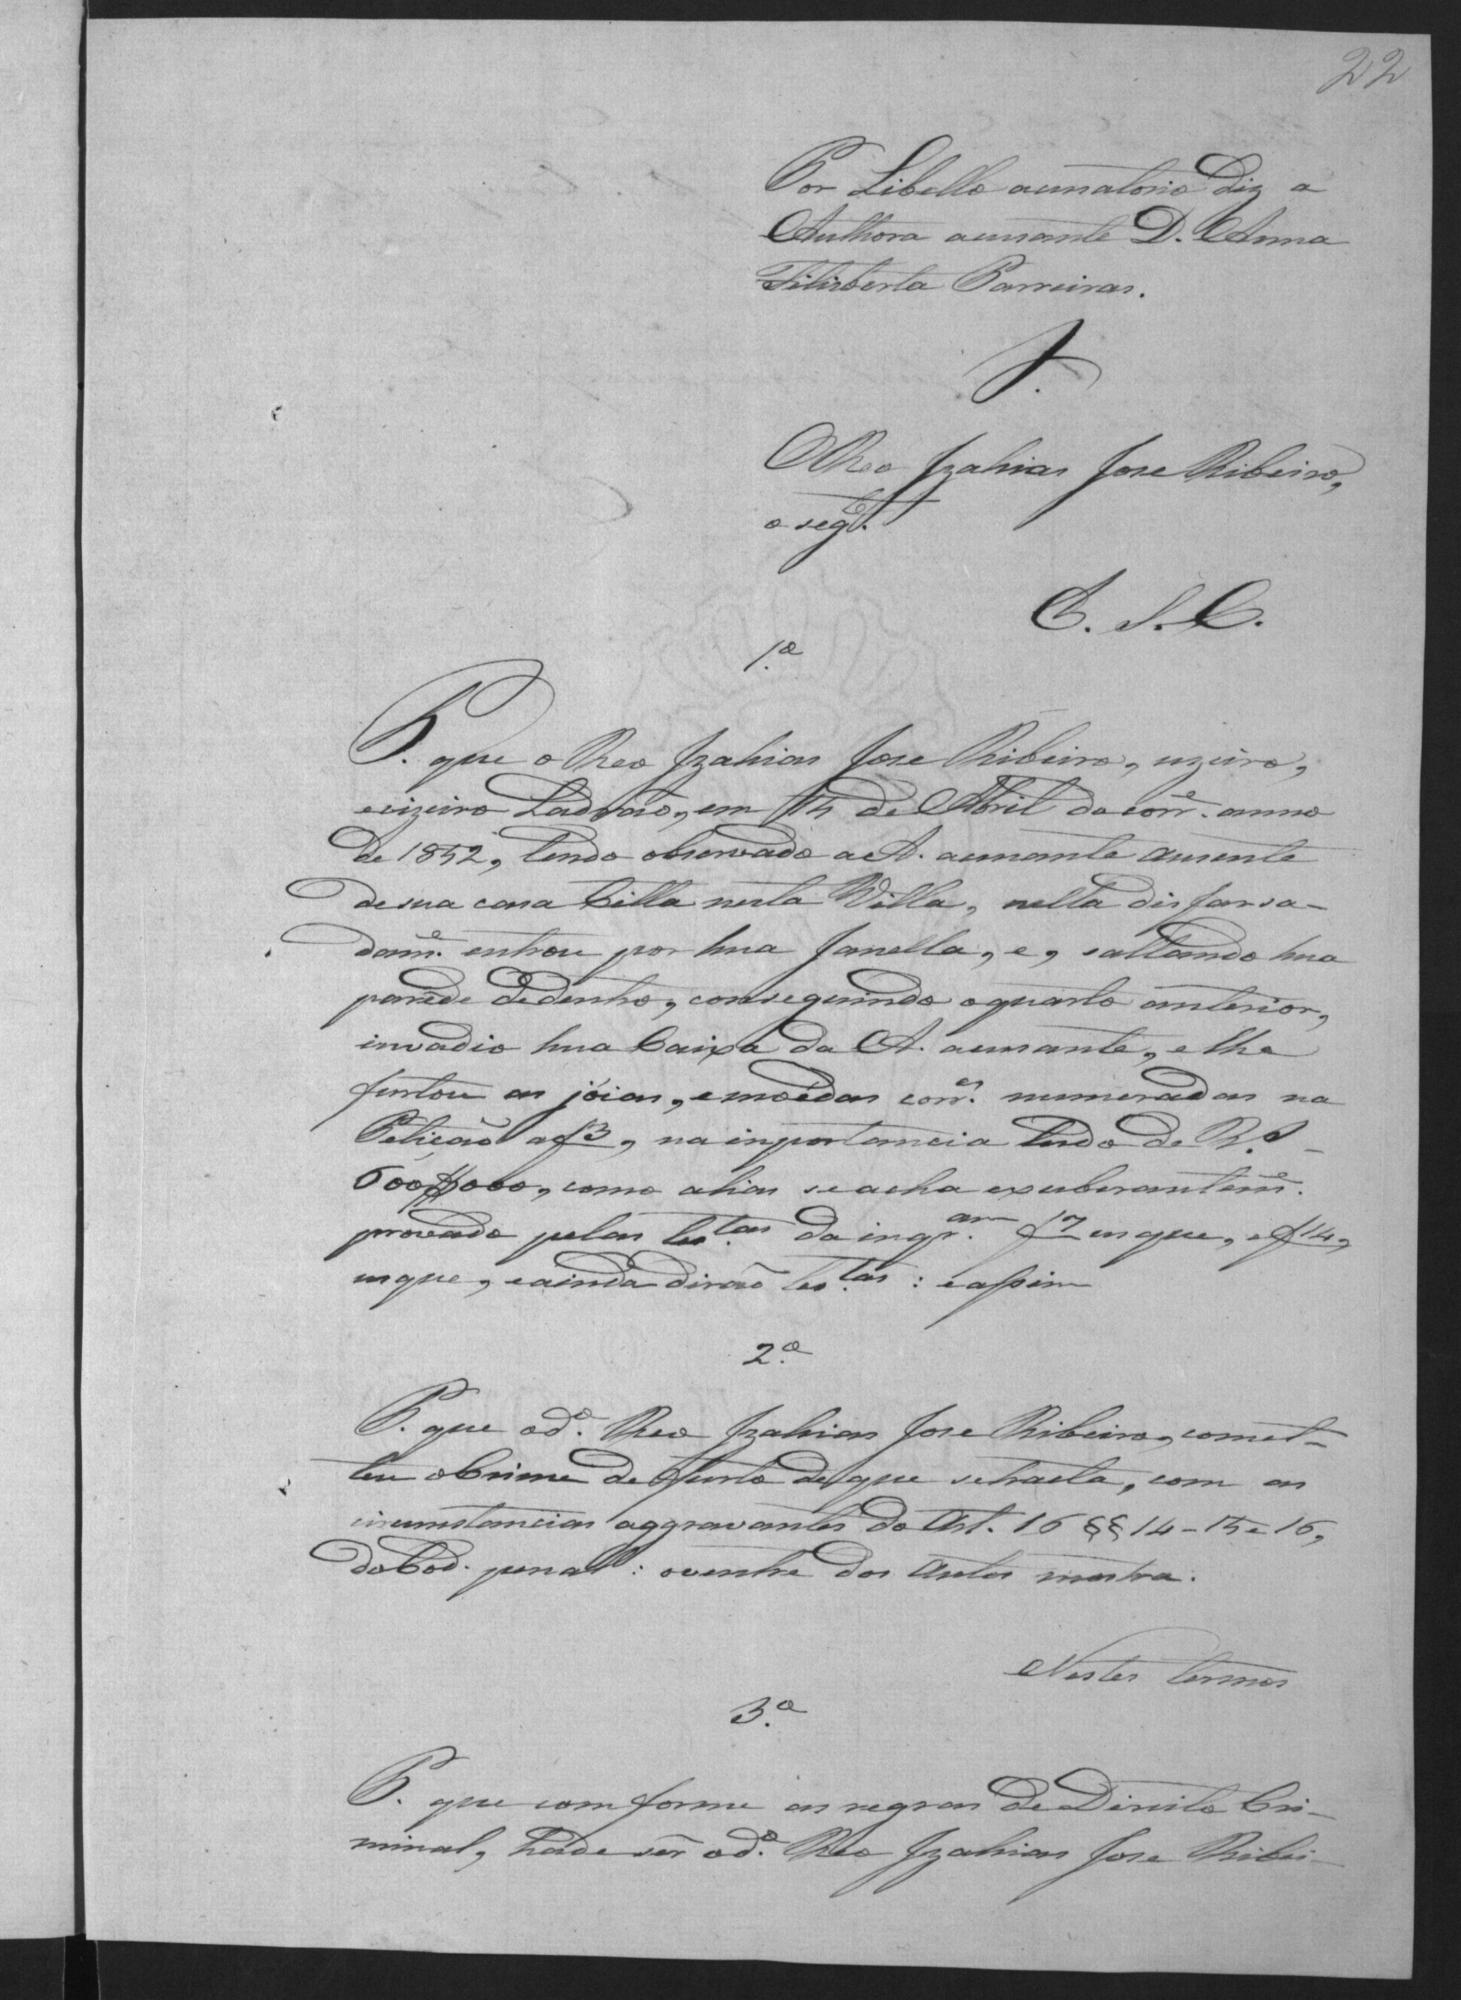 22
Por Libello accusatorio diz a
Authora accusante D. Anna
Filisberta Parreiras.
S.
O Reo Izahias Jose Ribeiro,
o segte.
E. S. C.
1.º
P. que o Reo Izahias Jose Ribeiro, uzeiro,
e vizeiro Ladrão, em 15 de Abril do corre. anno
de 1852, tendo observado a A. accusante ausente
de sua casa Citta nesta Villa, nella disfarsa-
dame. entrou por hua Janella, e, saltando hua
parêde de dentro, conseguindo o quarto anterior,
invadio hua Caixa da A. accusante, e lhe
furtou as jóias, e moêdas corres. numeradas na
Petição a f 3, na inportancia tudo de R.s
600$000, como alias se acha exuberanteme.
provado pelas tes.tas da inqr.am f 7 em que, e f 14,
em que, e ainda dirão tes.tas : e assim
2.º
P. que o d.º Reo Izahias Jose Ribeiro, comet-
teu o Crime de furto de que se tracta, com as
circumstancias aggravantes do Art. 16 §§ 14 - 15 e 16,
do Cod. penal : o ventre dos Autos mostra.
Nestes termos
3.º
P. que comforme as regras de Direito Cri-
minal, hade sêr o d.º Reo Izahias Jose Ribei-